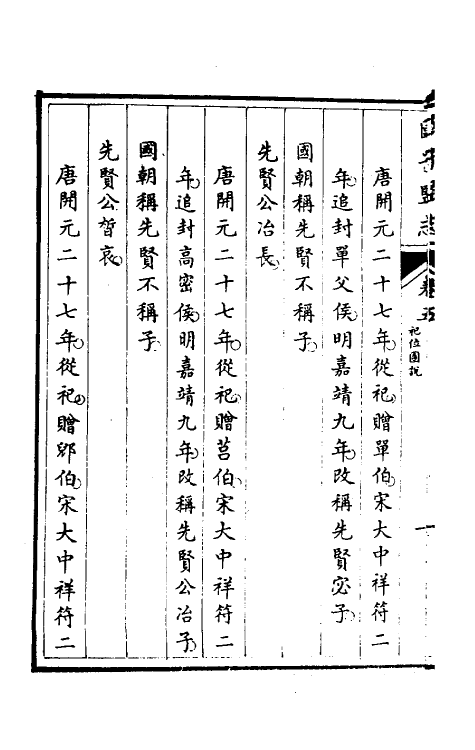 唐開元二十七年從祀贈單伯宋大中祥符二
年追封單父侯明嘉靖九年改稱先賢宓子
國朝稱先賢不稱子
先賢公冶長
唐開元二十七年從祀贈莒伯宋大中祥符二
年追封高密侯明嘉靖九年改稱先賢公冶子
國朝稱先賢不稱子
先賢公晳哀
唐開元二十七年從祀贈郳伯宋大中祥符二
卷五
祀位圖說